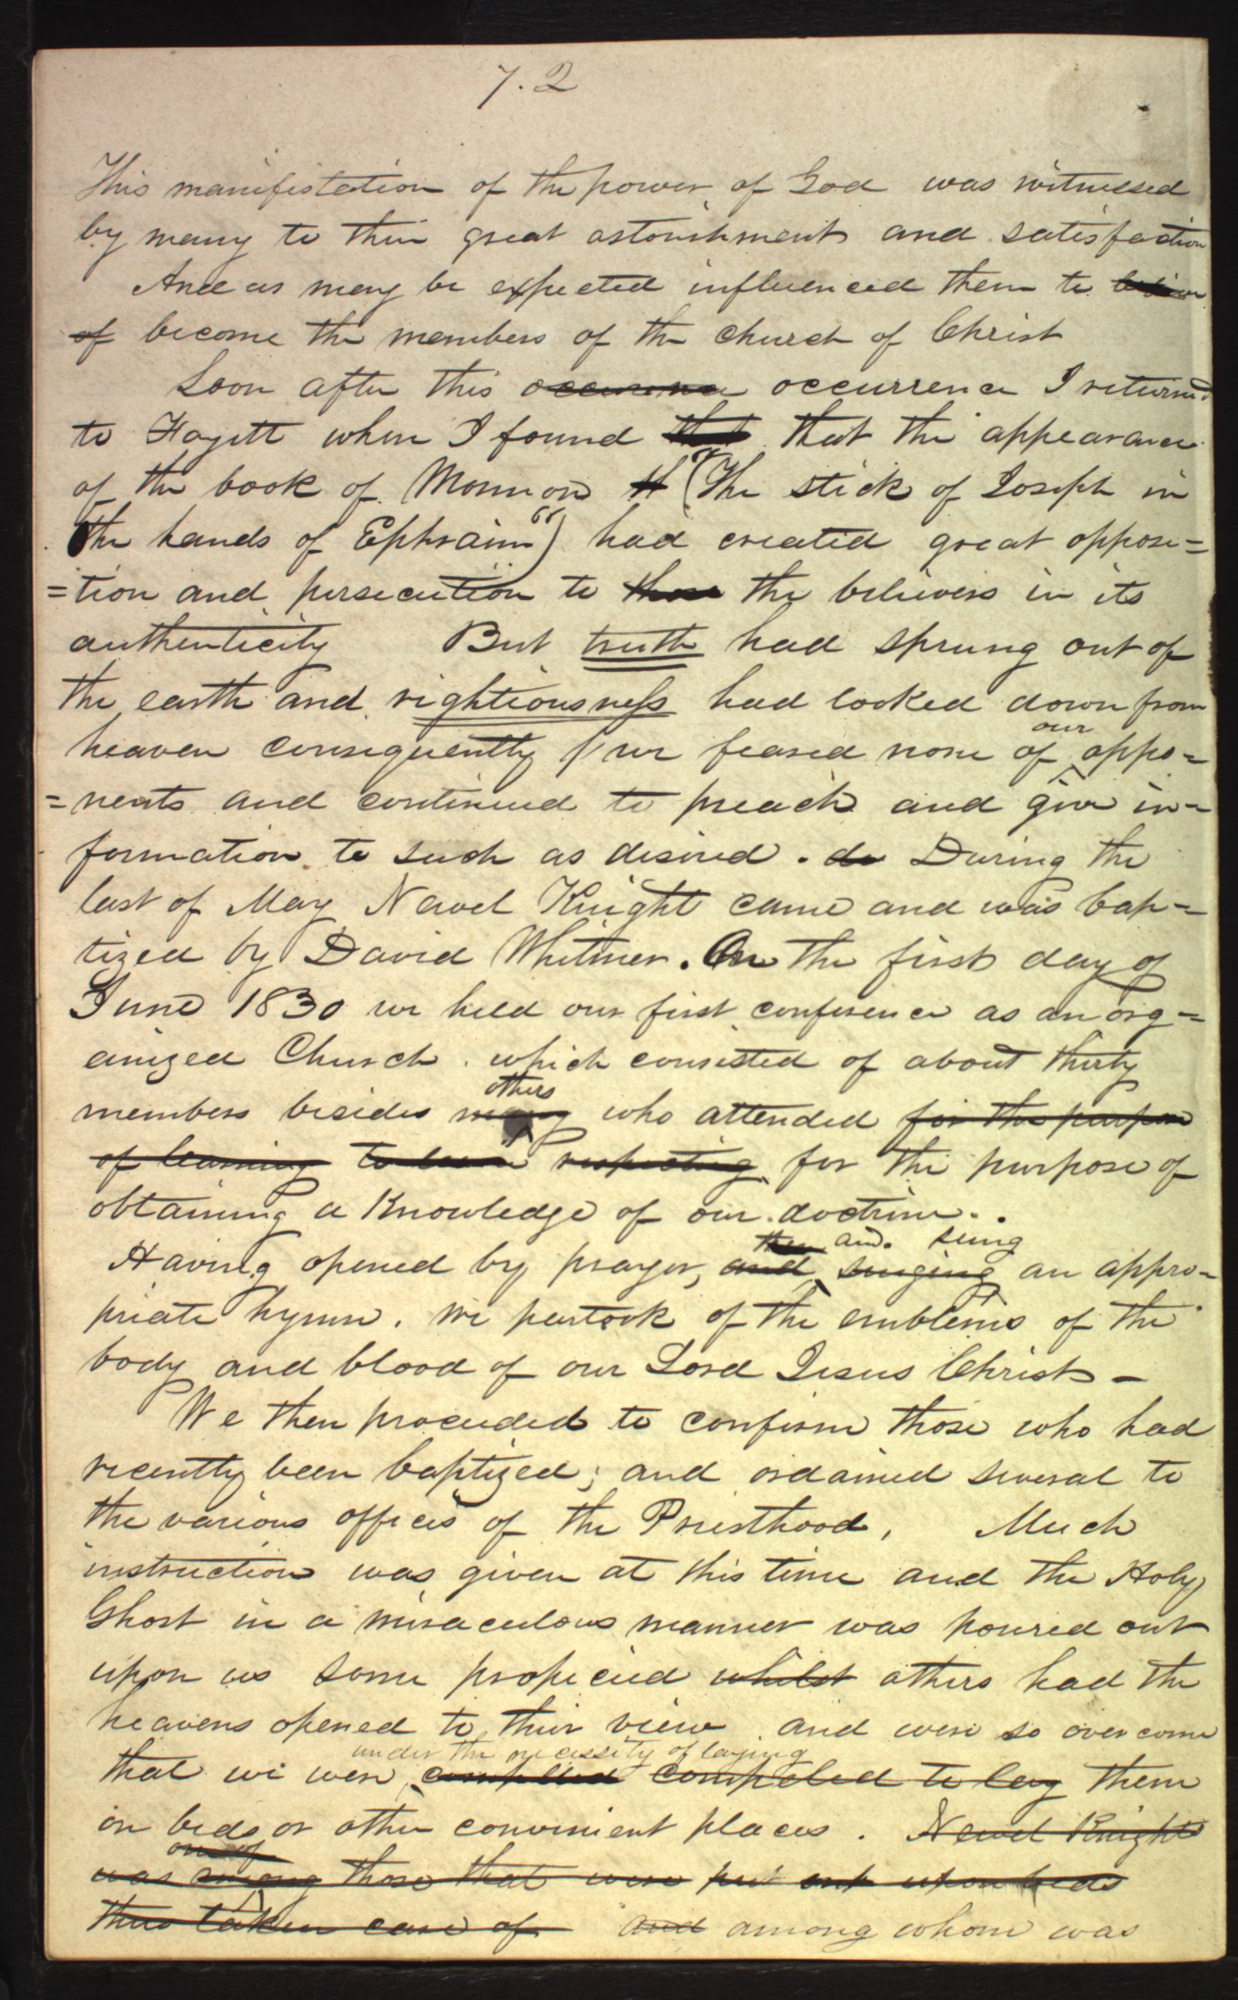 7.2
This manifestation of the power of God was witnessed
by many to their great astonishment and satisfaction
And as may be expected influenced them to
of become the members of the church of Christ
Soon after this occurrence I returned
to Fayett where I found that that the appearance
of the book of Mormon th ("The stick of Joseph in
the hands of Ephraim") had created great opposi=
=tion and persecution to those the believers in its
authenticity But truth had sprung out of
the earth and rightiousness had looked down from
our
heaven consequently we feared none of oppo=
=nents and continued to preach and give in=
formation to such as desired. do During the
last of May Newel Knight came and was bap=
tized by David Whitmer. On the first day of
June 1830 we held our first conference as an org=
anized Church which consisted of about thirty
others
members besides many who attended for the purpose
of learning to learn respecting for the purpose of
obtaining a Knowledge of our doctrine..
then and sung
Having opened by prayer, and singing an appro=
priate hymn. We partook of the emblems of the
body and blood of our Lord Jesus Christ –
We then proceeded to confirm those who had
recently been baptized; and ordained several to
the various offices of the Priesthood, Much
instruction was given at this time and the Holy
Ghost in a miraculous manner was poured out
upon us some propecied whilst others had the
heavens opened to their view and were so over come
under the necessity of laying
that we were compelled compeled to lay them
on beds or other convenient places. Newel Knight
one of
was among those that were put out upon beds
thus taken care of and among whom was